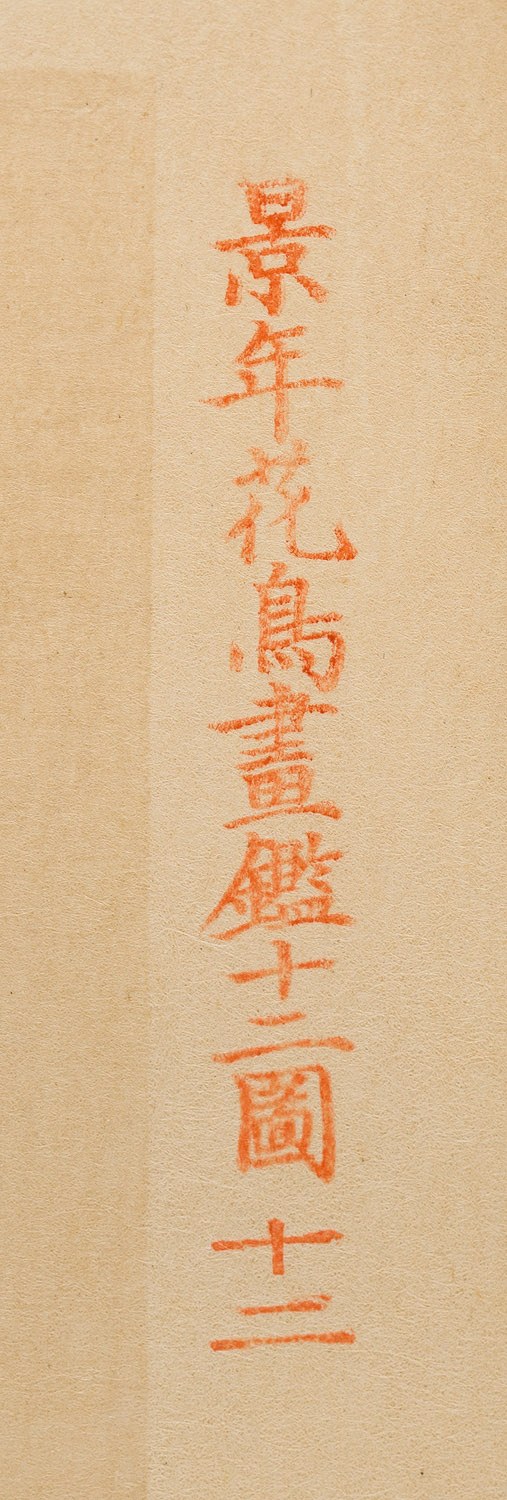 景年花鳥畫鑑十二圖 十二